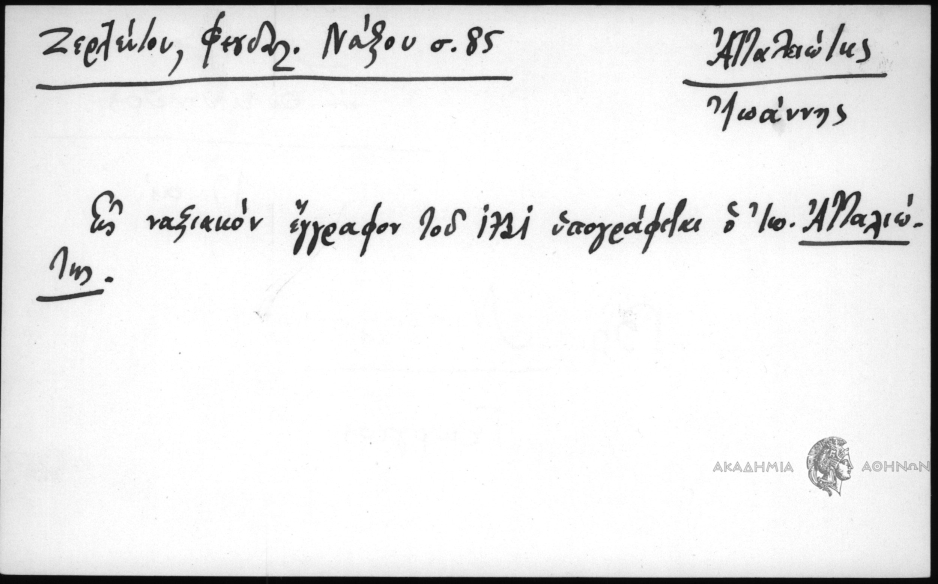 Ζερλέντου, Φεουδαλ. Νάξου σ. 85
Ἀτταλειώτης
Ἰωάννης
Εἰς ναξιακόν ἔγγραφον τοῦ 1721 ὑπογράφεται ὁ Ἰω. Ἀτταλιώ-
της.
ΑΚΑΔΗΜΙΑ ΑΘΗΝΩΝ